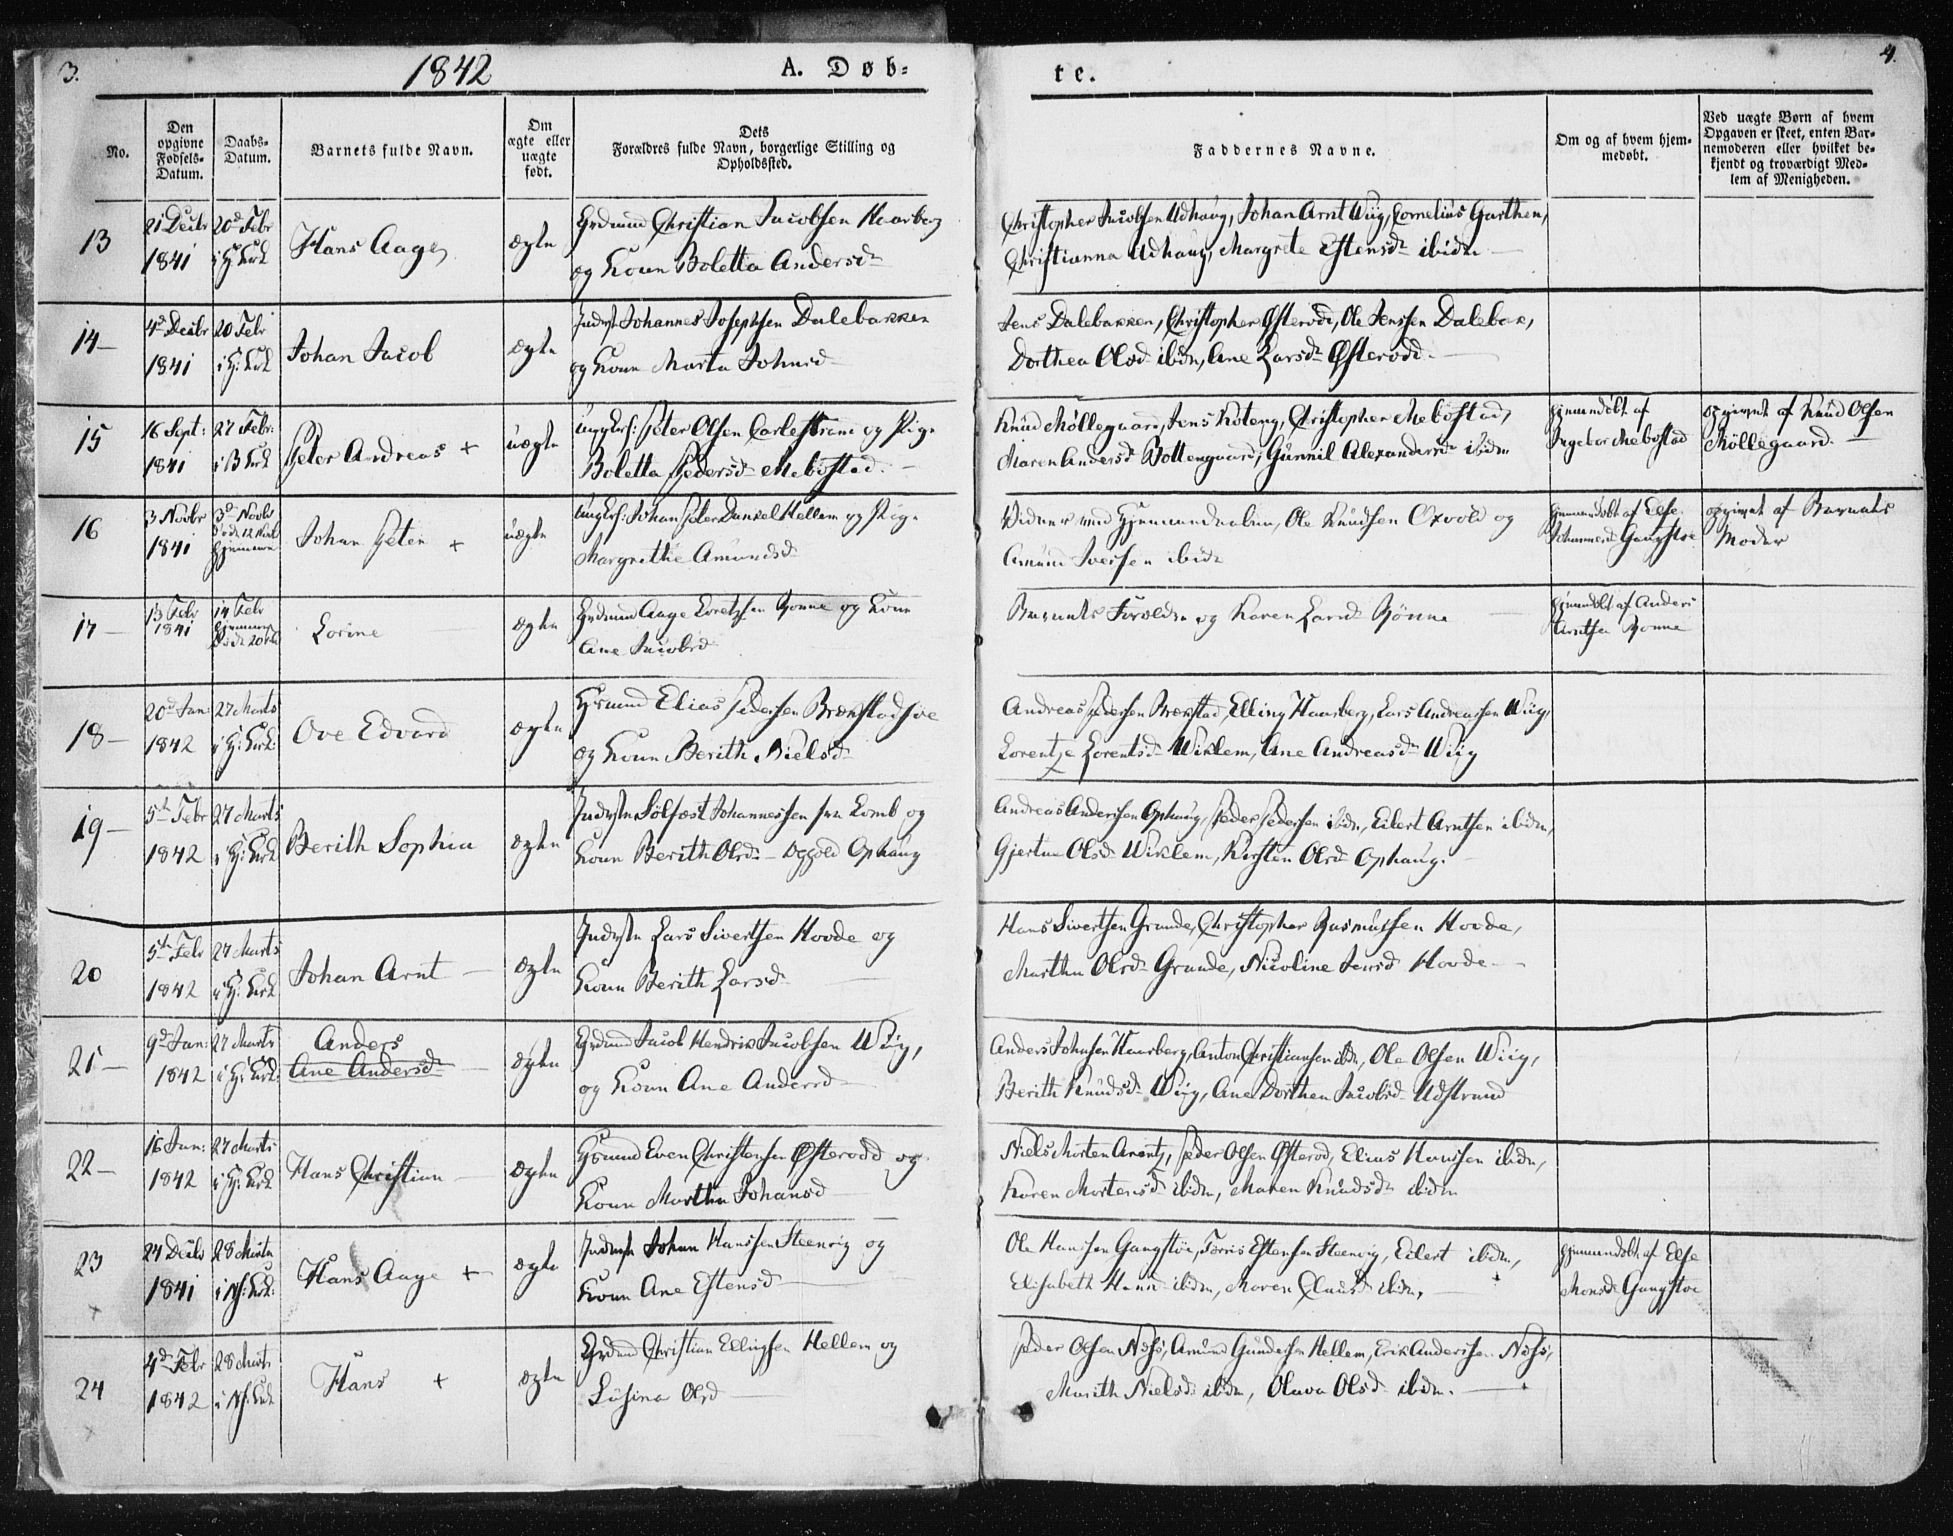 3.
1842
A. Døb=
te.
4.
No.
Den opgivne Fødsels-Datum.
Daabs-Datum.
Barnets fulde Navn.
Om ægte eller uægte født.
Dets Forældres fulde Navn, borgerlige Stilling og Opholdssted.
Faddernes Navne.
Om og af hvem hjemmedøbt.
Ved uægte Børn af hvem Opgaven er skeet, enten Barnemoderen eller hvilket bekjendt og troværdigt Medlem af Menigheden.
13
21 Decbr 1841
20d Febr
Hans Aage
ægte
Christian Jacobsen Haarberg
og Kone Boletta Andersd
Christopher Jacobsen Udhaug, Johan Arnt Wiig, Cornelius Garthen,
Christianna Udhaug, Margrete Estensdr ibidm
14
4d Decbr 1841
20 Febr
Johan Jacob
ægte
Inderst Johannes Josephsen Dalebakken
og Kone Marta Johnsd
Jens Dalebakken, Christopher Østeraad, Ole Jenssen Dalebak,
Dorthea Olsd ibidm, Ane Larsdr Østeraad
15
16 Sept: 1841
27 Febr:
Peter Andreas +
uægte
Ungkrl: Peter Olsen Carlestrand og Pige
Boletta Pedersd Mebostad
Knud Møllegaard, Jens Koteng, Christopher Mebostad,
Maren Andersd Bottengaard, Gunnil Alexandersd ibidm
hjemmedøbt af
Ingebor Mebostad
opgivet af Knud Olsen
Møllegaard
16
3 Novbr 1841
3d Novbr
Johan Peter +
uægte
Ungkrl: Johan Peter Hellem og Pige
Margrethe Amundsd
Vidner ved Hjemmedaaben, Ole Knudsen Oxvold og
Amund Iversen ibidm
hjemmedøbt af Else
Gangstøe
opgivet af Barnets
Moder
17
13 Febr 1841
14 Febr
Lorine
ægte
Aage Lorentzen Rønne og Kone
Ane Jacobsd
Barnets Forældre og Karen Larsd Rønne
hjemmedøbt af Anders
Arntsen Rønne
18
20d Jan: 1842
27 Marts
Ove Edvard
ægte
Elias Pedersen
og Kone Berith Nielsd
Andreas Pedersen Brekstad, Elling Haarberg, Lars Andreassen Wiig,
Lorentze Lorentsd Wiklem, Ane Andreasd Wiig
19
5te Febr 1842
27 Marts
Berith Sophia
ægte
Inderst Sølfæst Johannessen fra Lomb og
Kone Berith Olsd Ophaug
Andreas Andersen Ophaug, Peder Pedersen ibidm, Eilert Arntsen ibidm,
Olsd Wiklem, Kirsten Olsd Ophaug.
20
5te Febr 1842
27 Marts
Johan Arnt
ægte
Inderst Lars Sivertsen Hovde og
Kone Berith Larsd
Hans Sivertsen Grande, Christopher Rasmussen Hovde,
Marthe Olsd Grande, Nicoline Jensd Hovde
21
9d Jan: 1842
27 Marts
Anders
Ane Andersd
ægte
Jacob Hendrik Jacobsen Wiig,
og Kone Ane Andersd
Anders Johnsen Haarberg, Anton Christiansen ibidm, Ole Olsen Wiig,
Berith Knudsd Wiig, Ane Dorthea Jacobsd Udstrand
22
16 Jan: 1842
27 Marts
Hans Christian
ægte
Even Christensen Østeraad og
Kone Marthe Johansd
Niels Morten Arentz, Peder Olsen Østeraad, Elias Hansen ibidm,
Karen Mortensd ibidm, Maren Knudsd ibidm
23
24 Decbr 1841
28 Marts
Hans Aage +
ægte
Inderst Johan Hanssen Steenvig og
Kone Ane Estensd
Ole Hansen Gangstøe, Estensen Steenvig, Eilert ibidm,
Elisabeth ibidm, Maren ibidm,
hjemmedøbt af Else
Monsd Gangstøe
24
4d Febr 1842
28 Marts
Hans +
ægte
Christian Ellingsen Hellem og
Olsd
Peder Olsen Næss, Amund Gundersen Hellem, Erik Andersen Næss,
Marith Nielsd ibidm, Olava Olsd ibidm.